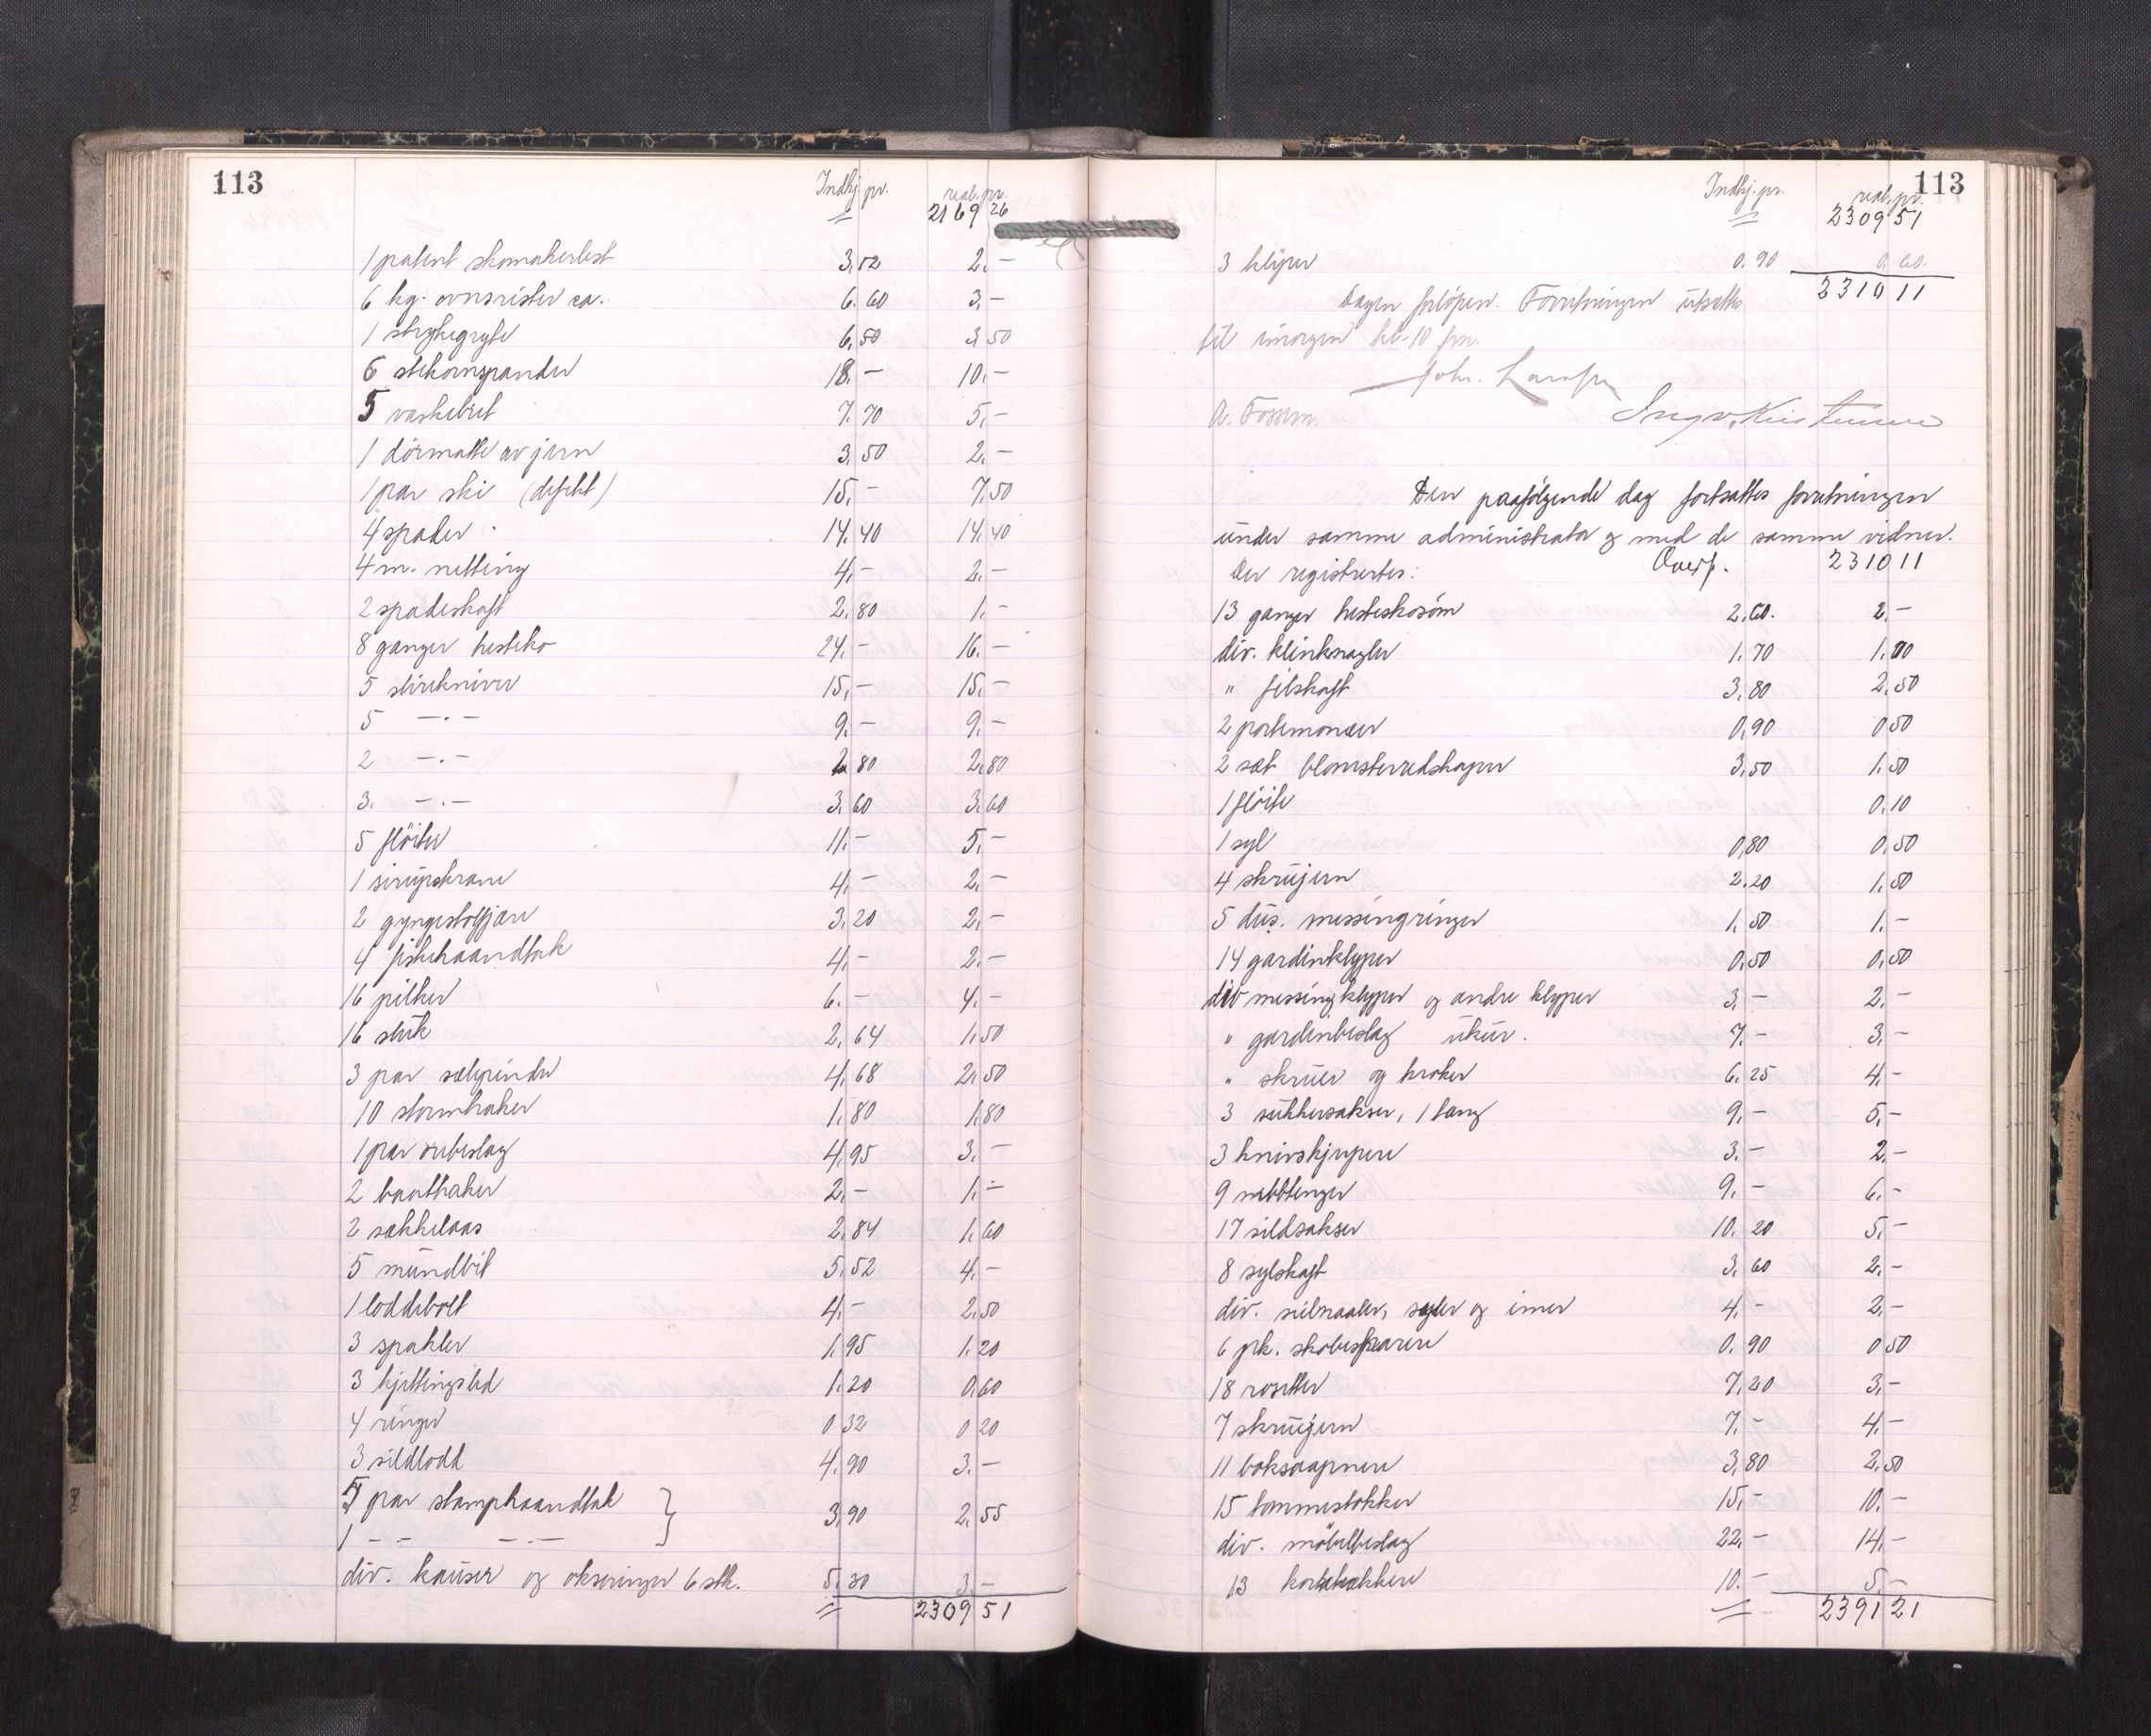 113
Indkj. pr. real. pr.
2169 26
1 patent skomakerlest 3,52 2,-
6 kg. ovnsrister ca. 6.60 3,-
1 strykegryte 6,50 3,50
6 stekovnspander 18,- 10,-
5 vaskebret 7.70 5,-
1 dörmatte av jern 3,50 2,-
1 par ski (defekt) 15,- 7,50
4 spader 14,40 14,40
4 m. netting 4,- 2,-
2 spadeskaft 2,80 1,-
8 ganger hestesko 24,- 16,-
5 slirekniver 15,- 15,-
5 -"- 9,- 9,-
2 -"- 2,80 2,80
3. -"- 3,60 3,60
5 flöiter 11,- 5,-
1 sirupskrane 4,- 2,-
2 gyngestolfjær 3,20 2,-
4 fiskehaandtak 4,- 2,-
16 pilker 6,- 4,-
16 sluk 2,64 1,50
3 par selepinder 4,68 2,50
10 stormhaker 1,80 1,80
1 par rubeslag 4,95 3,-
2 baathaker 2,- 1,-
2 sækkelaas 2,84 1,60
5 mundbit 5,52 4,-
1 loddebolt 4,- 2,50
3 spakler 1,95 1,20
3 kjettingsled 1,20 0,60
4 ringer 0 32 0 20
3 sildlodd 4,90 3,-
5 par stamphaandtak } 3,90 2,55
1 - - - -
div. kauser og okseringer 6 stk. 5,30 3,-
230951
113
Indkj. pr. real. pr.
230951
3 klyper 0.90 0.60.
231011
Dagen forløpen. Forretningen utsattes
til imorgen kl. 10 fm.
Joh. Larsen
A. Fossem.
Ingv. Kristensen
Den paafölgende dag fortsattes forretningen
under samme administrator og med de samme vidner.
Der registrertes: Overf. 231011
13 ganger hesteskosöm 2,60. 2,-
div. klinknagler 1.70 1.00
" filskaft 3,80 2,50
2 portemonæer 0,90 0 50
2 sæt blomsterredskaper 3,50 1,50
1 flöite 0,10
1 syl 0,80 0,50
4 skrujern 2.20 1,50
5 dus. messingringer 1,50 1,-
14 gardinklyper 0,50 0,50
div messingklyper og andre klyper 3,- 2,-
" gardinbeslag ukur. 7,- 3,-
" skruer og kroker 6,25 4,-
3 sukkersakser, 1 tang 9,- 5,-
3 knivskjerpere 3,- 2,-
9 nebbtenger 9,- 6,-
17 sildsakser 10,20 5,-
8 sylskaft 3,60 2,-
div. seilnaaler, syler og imer 4,- 2,-
6 pk. skobesparere 0,90 0 50
18 rosetter 7,20 3,-
7 skruejern 7,- 4,-
11 boksaapnere 3,80 2,50
15 tommestokker 15,- 10,-
div. möbelbeslag 22,- 14,-
13 korketrækkere 10,- 5,-
239121